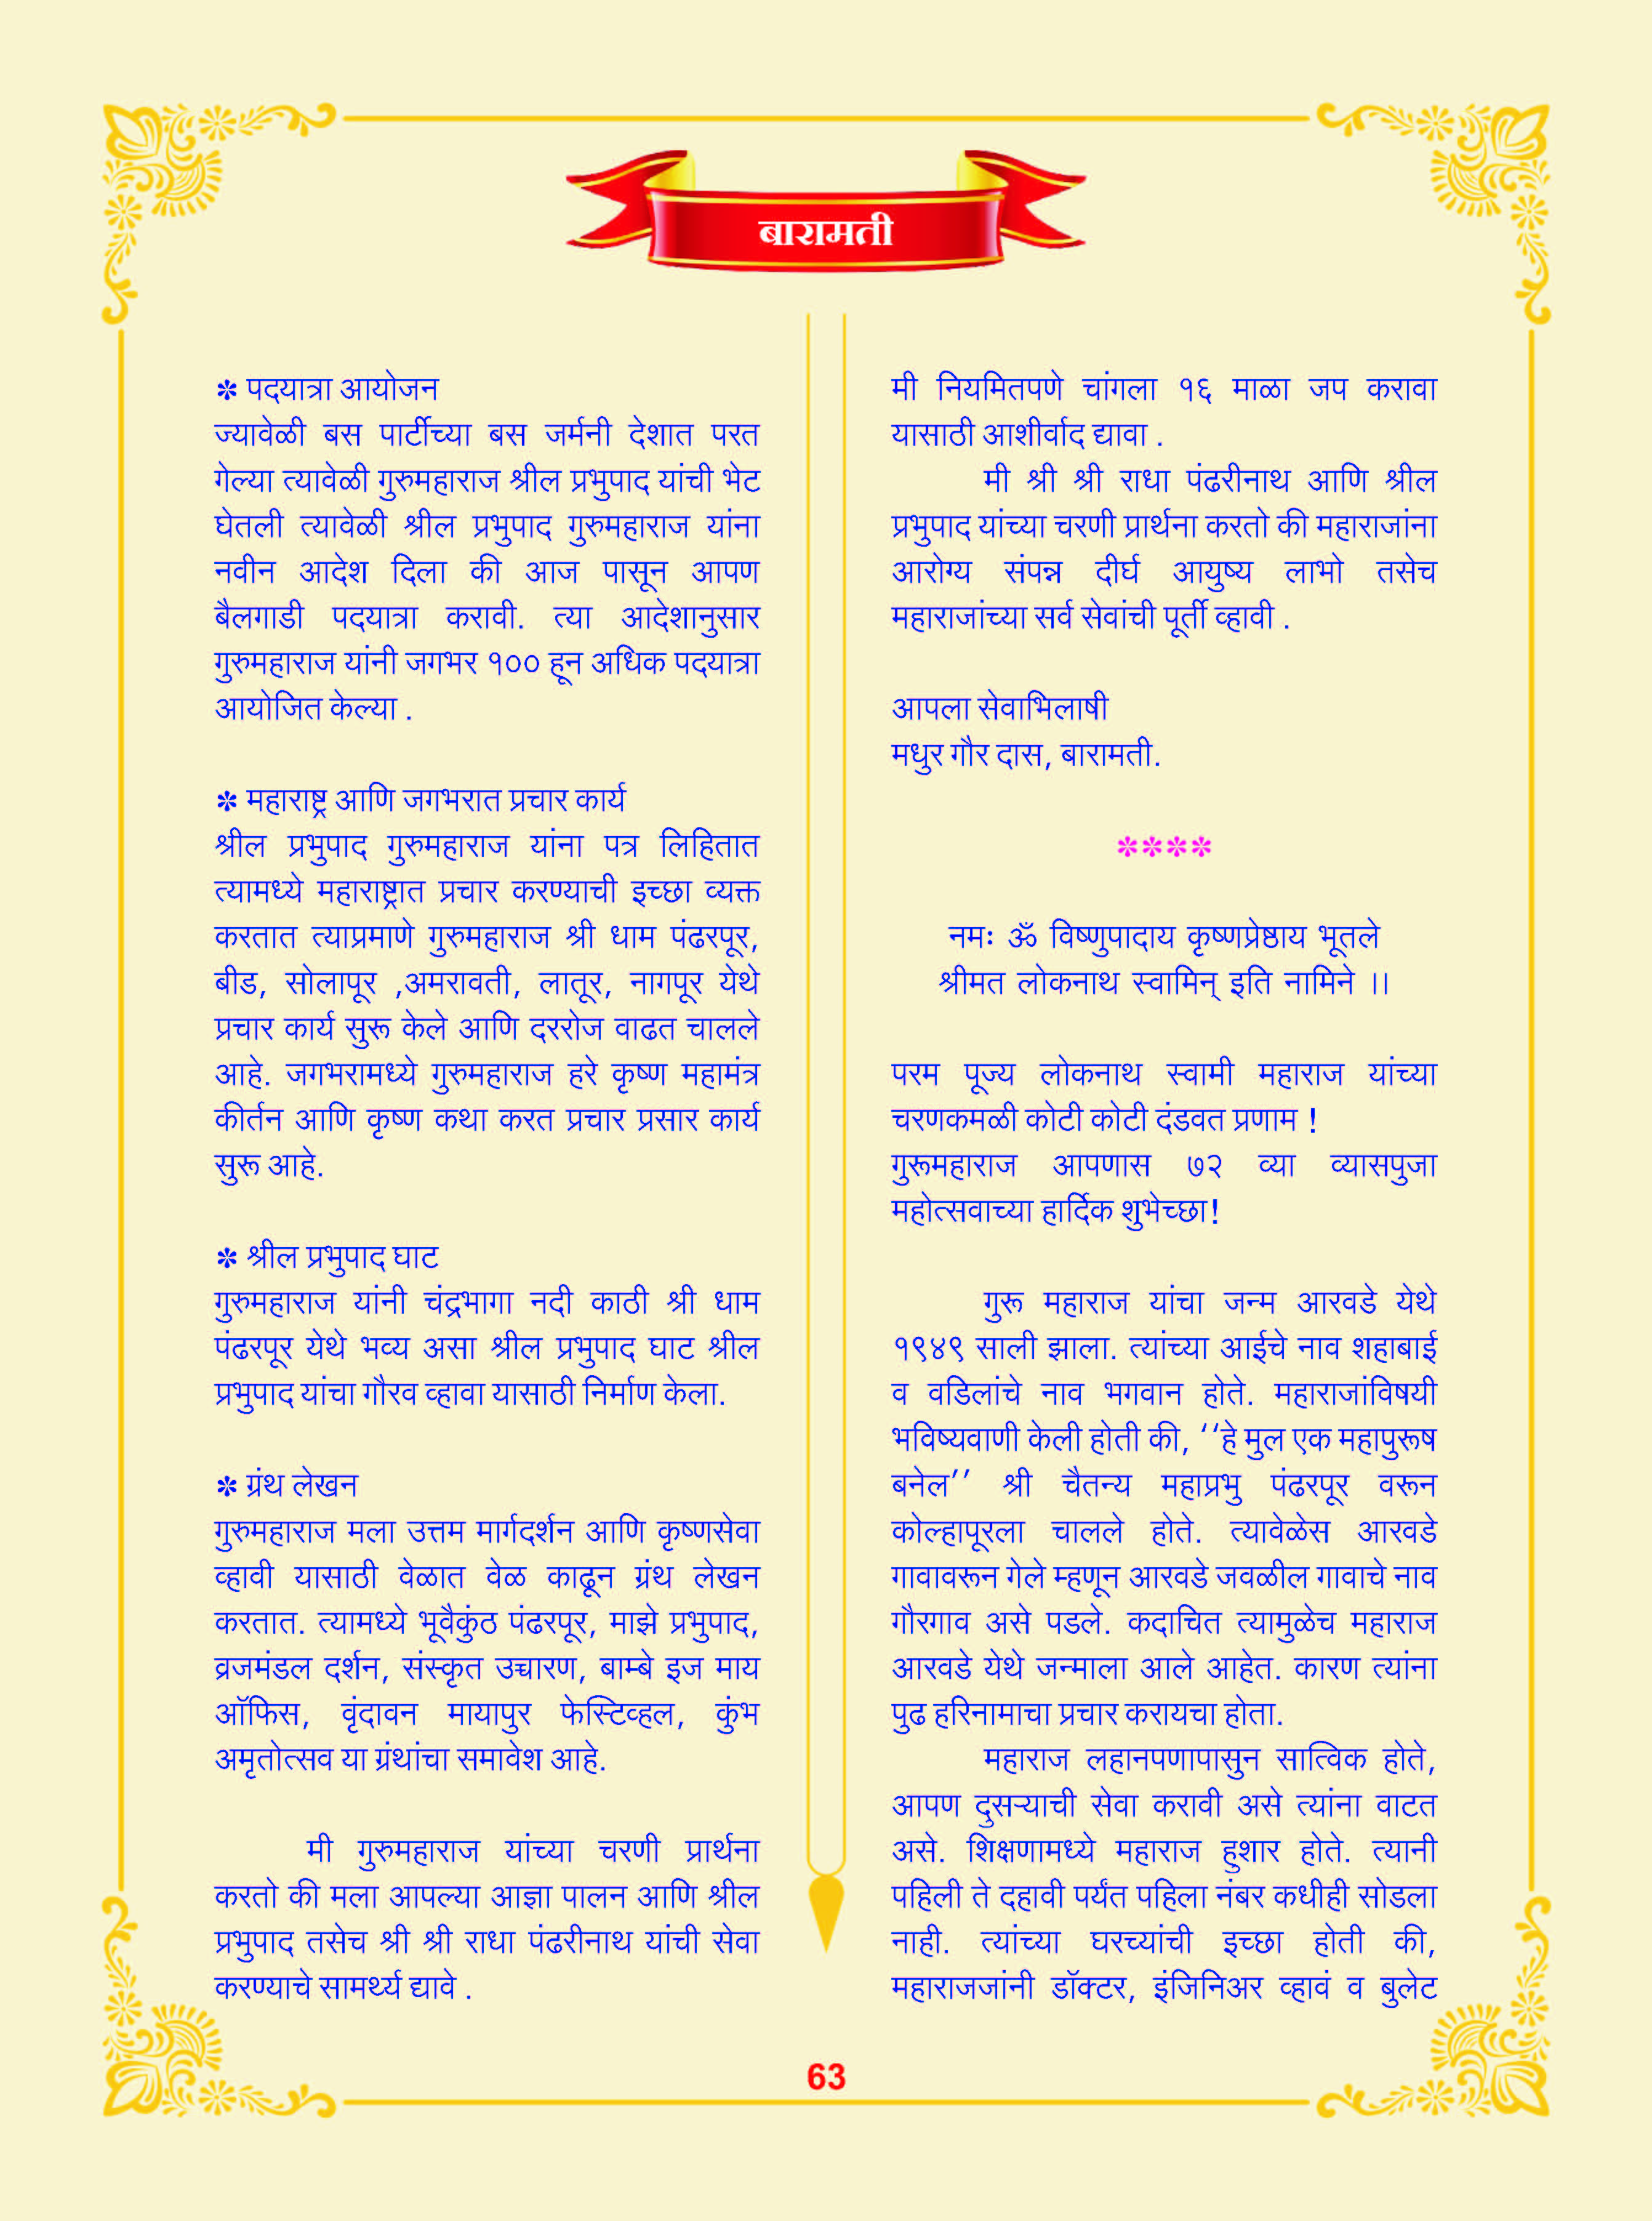 बारामती
✽ पदयात्रा आयोजन
ज्यावेळी बस पार्टीच्या बस जर्मनी देशात परत
गेल्या त्यावेळी गुरुमहाराज श्रील प्रभुपाद यांची भेट
घेतली त्यावेळी श्रील प्रभुपाद गुरुमहाराज यांना
नवीन आदेश दिला की आज पासून आपण
बैलगाडी पदयात्रा करावी. त्या आदेशानुसार
गुरुमहाराज यांनी जगभर १०० हून अधिक पदयात्रा
आयोजित केल्या .
✽ महाराष्ट्र आणि जगभरात प्रचार कार्य
श्रील प्रभुपाद गुरुमहाराज यांना पत्र लिहितात
त्यामध्ये महाराष्ट्रात प्रचार करण्याची इच्छा व्यक्त
करतात त्याप्रमाणे गुरुमहाराज श्री धाम पंढरपूर,
बीड, सोलापूर ,अमरावती, लातूर, नागपूर येथे
प्रचार कार्य सुरू केले आणि दररोज वाढत चालले
आहे. जगभरामध्ये गुरुमहाराज हरे कृष्ण महामंत्र
कीर्तन आणि कृष्ण कथा करत प्रचार प्रसार कार्य
सुरू आहे.
✽ श्रील प्रभुपाद घाट
गुरुमहाराज यांनी चंद्रभागा नदी काठी श्री धाम
पंढरपूर येथे भव्य असा श्रील प्रभुपाद घाट श्रील
प्रभुपाद यांचा गौरव व्हावा यासाठी निर्माण केला.
✽ ग्रंथ लेखन
गुरुमहाराज मला उत्तम मार्गदर्शन आणि कृष्णसेवा
व्हावी यासाठी वेळात वेळ काढून ग्रंथ लेखन
करतात. त्यामध्ये भूवैकुंठ पंढरपूर, माझे प्रभुपाद,
व्रजमंडल दर्शन, संस्कृत उच्चारण, बाम्बे इज माय
ऑफिस, वृंदावन मायापुर फेस्टिव्हल, कुंभ
अमृतोत्सव या ग्रंथांचा समावेश आहे.
मी गुरुमहाराज यांच्या चरणी प्रार्थना
करतो की मला आपल्या आज्ञा पालन आणि श्रील
प्रभुपाद तसेच श्री श्री राधा पंढरीनाथ यांची सेवा
करण्याचे सामर्थ्य द्यावे .
मी नियमितपणे चांगला १६ माळा जप करावा
यासाठी आशीर्वाद द्यावा .
मी श्री श्री राधा पंढरीनाथ आणि श्रील
प्रभुपाद यांच्या चरणी प्रार्थना करतो की महाराजांना
आरोग्य संपन्न दीर्घ आयुष्य लाभो तसेच
महाराजांच्या सर्व सेवांची पूर्ती व्हावी .
आपला सेवाभिलाषी
मधुर गौर दास, बारामती.
✽✽✽✽
नमः ॐ विष्णुपादाय कृष्णप्रेष्ठाय भूतले
श्रीमत लोकनाथ स्वामिन् इति नामिने ।।
परम पूज्य लोकनाथ स्वामी महाराज यांच्या
चरणकमळी कोटी कोटी दंडवत प्रणाम !
गुरूमहाराज आपणास ७२ व्या व्यासपुजा
महोत्सवाच्या हार्दिक शुभेच्छा!
गुरू महाराज यांचा जन्म आरवडे येथे
१९४९ साली झाला. त्यांच्या आईचे नाव शहाबाई
व वडिलांचे नाव भगवान होते. महाराजांविषयी
भविष्यवाणी केली होती की, ‘‘हे मुल एक महापुरूष
बनेल’’ श्री चैतन्य महाप्रभु पंढरपूर वरून
कोल्हापूरला चालले होते. त्यावेळेस आरवडे
गावावरून गेले म्हणून आरवडे जवळील गावाचे नाव
गौरगाव असे पडले. कदाचित त्यामुळेच महाराज
आरवडे येथे जन्माला आले आहेत. कारण त्यांना
पुढ हरिनामाचा प्रचार करायचा होता.
महाराज लहानपणापासुन सात्विक होते,
आपण दुसऱ्याची सेवा करावी असे त्यांना वाटत
असे. शिक्षणामध्ये महाराज हुशार होते. त्यानी
पहिली ते दहावी पर्यंत पहिला नंबर कधीही सोडला
नाही. त्यांच्या घरच्यांची इच्छा होती की,
महाराजजांनी डॉक्टर, इंजिनिअर व्हावं व बुलेट
63